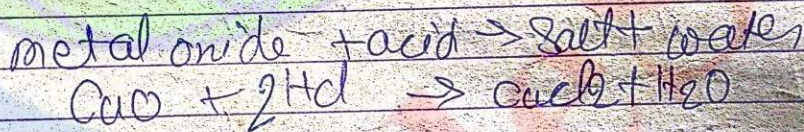 metal oxide + acid → Salt + water
CaO + 2HCl → CaCl2 + H2O